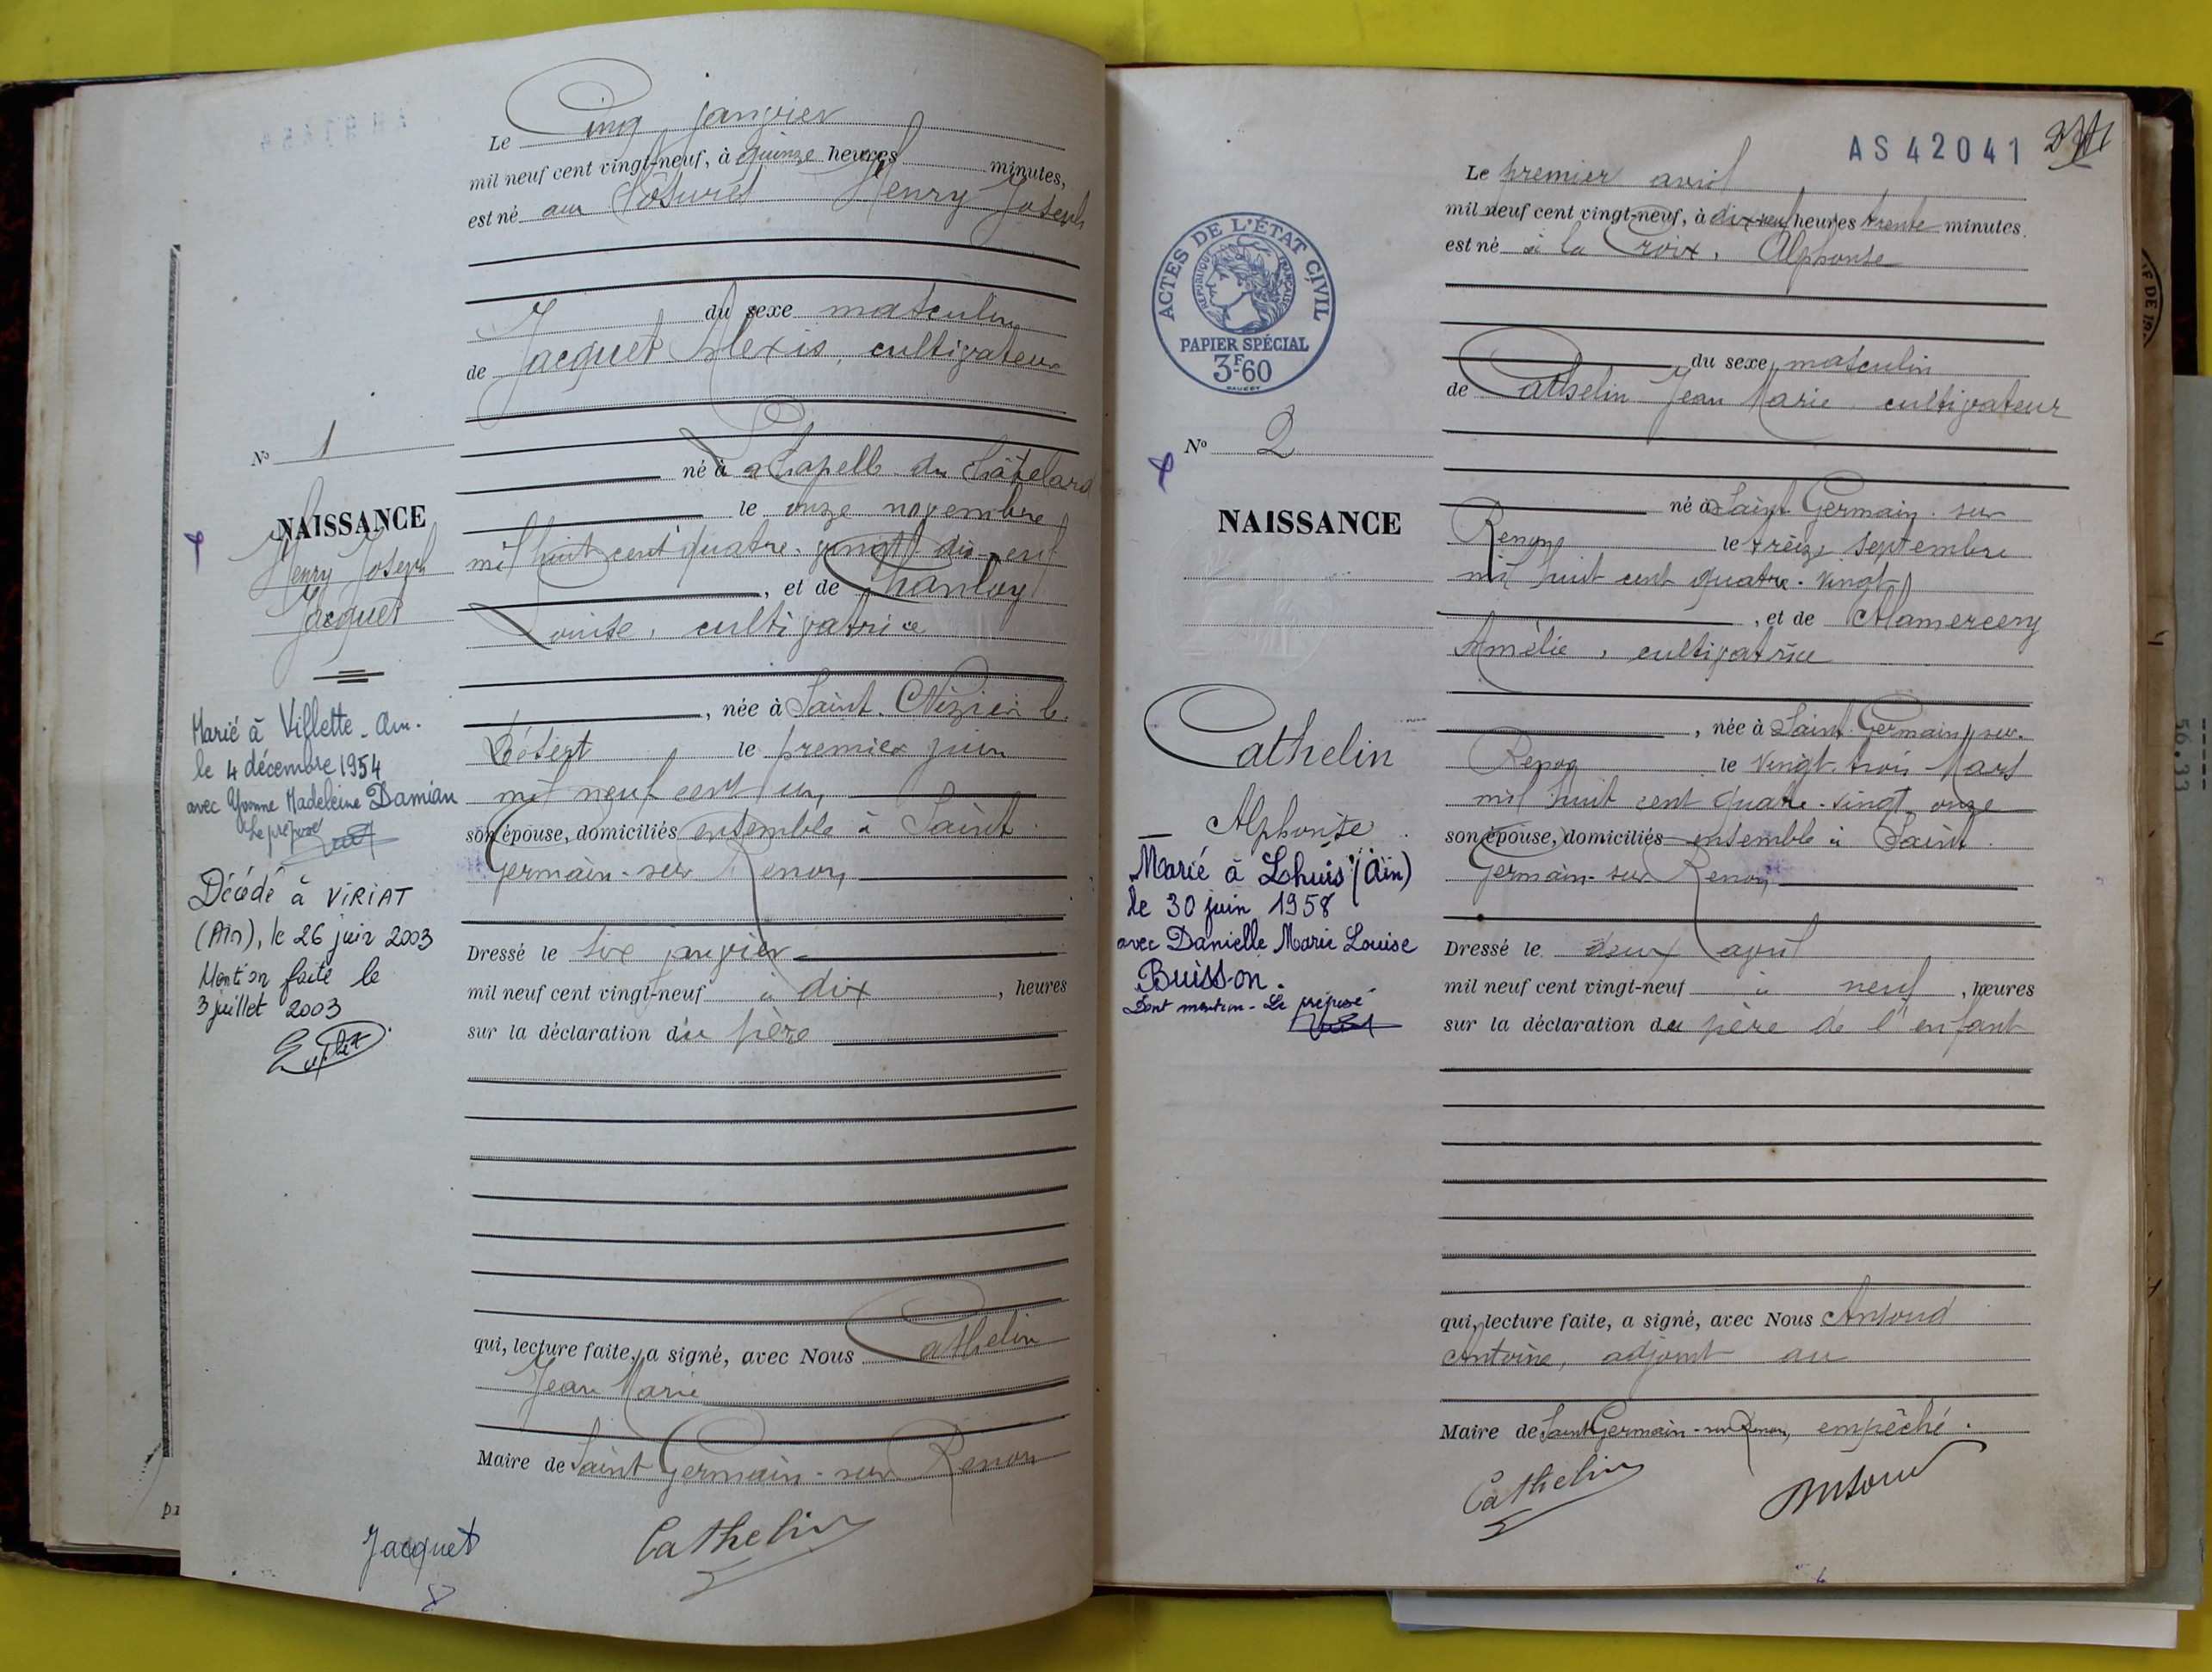 Le Cinq janvier
mil neuf cent vingt-neuf, à quinze heures minutes,
est né aux Henry Joseph
du sexe masculin
de Jacquet Alexis, cultivateur
né à La Chapelle du Châtelard
le onze novembre
mil huit cent quatre-vingt dix-neuf
, et de Chanloy
Louise, cultivatrice
, née à Saint-Nizier le
Désert le premier juin
mil neuf cent un,
son épouse, domiciliés ensemble à Saint
Germain-sur Renon
Dressé le six janvier
mil neuf cent vingt-neuf à dix , heures
sur la déclaration du père
qui, lecture faite, a signé, avec Nous Cathelin
Jean Marie
Maire de Saint Germain-sur Renon
Jacquet
Cathelin
N° 1
NAISSANCE
Henry Joseph
Jacquet
Marié à Villette-
le 4 décembre 1954
avec Yvonne Madeleine Damian
Le préposé
Décédé à VIRIAT
(Ain), le 26 juin 2003
Mention faite le
3 juillet 2003
AS 42041
ACTES DE L'ÉTAT CIVIL
RÉPUBLIQUE FRANÇAISE
PAPIER SPÉCIAL
3F60
N° 2
NAISSANCE
Cathelin
Alphonse
Marié à Lhuis (Ain)
le 30 juin 1958
avec Danielle Marie Louise
Buisson.
Dont mention - Le préposé
Le premier avril
mil neuf cent vingt-neuf, à dix-neuf heures trente minutes.
est né à la Croix, Alphonse
du sexe masculin
de Cathelin Jean Marie cultivateur
né à Saint Germain-sur
Renon le treize septembre
mil huit cent quatre-vingt
, et de Mamercery
Amélie, cultivatrice
, née à Saint Germain sur-
Renon le vingt-trois Mars
mil huit cent quatre-vingt onze
son épouse, domiciliés ensemble à Saint
Germain-sur Renon
Dressé le deux avril
mil neuf cent vingt-neuf à neuf , heures
sur la déclaration du père de l'enfant
qui, lecture faite, a signé, avec Nous Ansoud
Antoine, adjoint au
Maire de Saint Germain-sur Renon, empêché.
Cathelin
Ansoud